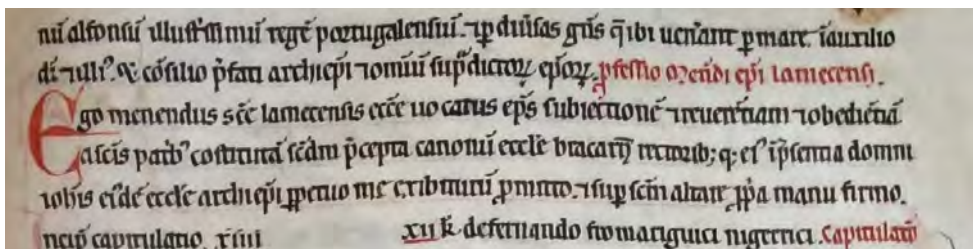 nũ alfonsũ illustͥssimũ regẽ portugalensiũ. ⁊ p diũsas gẽtes q̃ ibi uenãnt p mare. ĩ auxilio
di ⁊ illiꝰ. ⁊ cõsilio p̃fati archiep̃i ⁊ omiũ sup̃dictoꝝ ep̃oꝝ. ꝓfessio Menẽdi ep̃i lamecensis.
Ego menendus sc̃e lamecensis eccl̃e uocatus ep̃s subiectionẽ ⁊ reuerẽtiam ⁊ obediẽtiã
a sc̃is patribꝰ cõstitutã scd̃m p̃cepta canonũ eccl̃e bracarẽ rectoribꝫ qꝫ eiꝰ ĩ p̃sentia domni
iohis eiꝰdẽ eccl̃e archiep̃i ꝑpetuo me exhibiturũ ꝓmitto. ⁊ sup sc̃m altare ꝓp̃a manu firmo.
capitulatio. xiiii xii k̃. de fernando